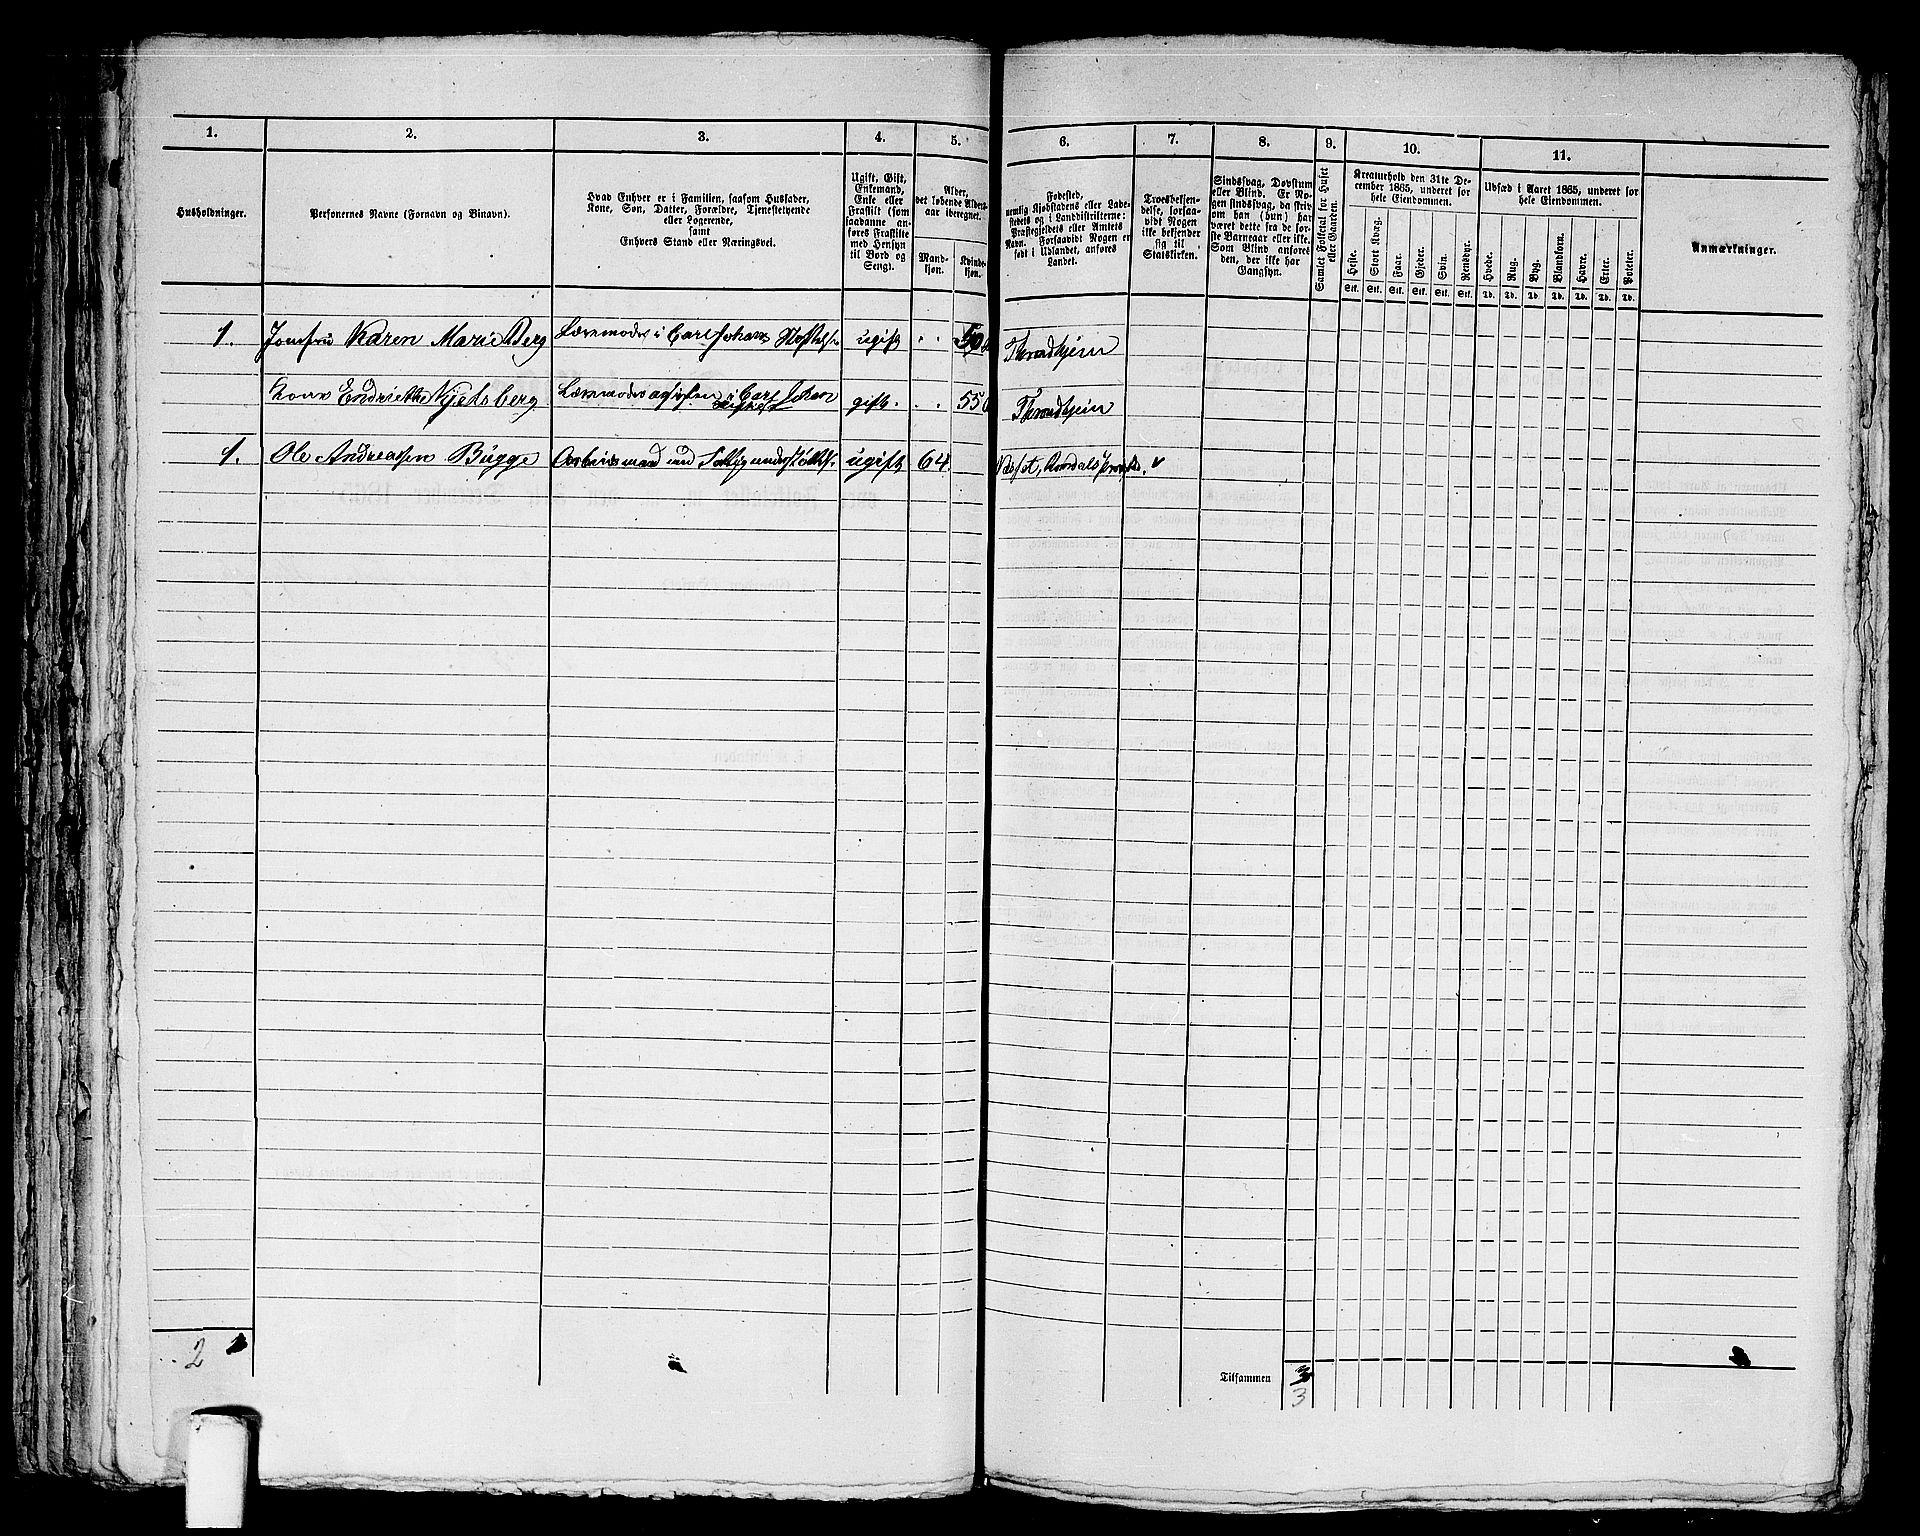 1. 2. 3. 4. 5. 6. 7. 8. 9. 10. 11.
Husholdninger.
Personernes Navne (Fornavn og Binavn).
Hvad Enhver er i Familien, saasom Husfader,
Kone, Søn, Datter, Forældre, Tjenestetyende
eller Logerende,
samt
Enhvers Stand eller Næringsvei.
Ugift, Gift,
Enkemand,
Enke eller
Fraskilt (som
saadanne an-
føres Fraskilte
med Hensyn
til Bord og
Seng).
Alder,
det løbende Alders-
aar iberegnet.
Mand-
kjøn.
Kvinde-
kjøn.
Fødested,
nemlig Kjøbstadens eller Lade-
stedets og i Landdistrikterne:
Præstegjeldets eller Amtets
Navn. Forsaavidt Nogen er
født i Udlandet, anføres
Landet.
Troesbekjen-
delse, forsaa-
vidt Nogen
ikke bekjender
sig til
Statskirken.
Sindssvag, Døvstum
eller Blind. Er No-
gen sindssvag, da skriv
om han (hun) har
været dette fra de før-
ste Barneaar eller ikke.
Som Blind anføres
den, der ikke har
Gangsyn.
Samlet Folketal for Huset
eller Gaarden.
Kreaturhold den 31te De-
cember 1865, underet for
hele Eiendommen.
Heste. Stort Kvæg. Faar. Gjeder. Svin. Rensdyr.
Stk. Stk. Stk. Stk. Stk. Stk.
Udsæd i Aaret 1865, underet for
hele Eiendommen.
Hvede. Rug. Byg. Blandkorn. Havre. Erter. Poteter.
Td. Td. Td. Td. Td. Td. Td.
Anmærkninger.
1. Jomfru Karen Marie Berg Læremoder i Carl Johans ugift 50 Throndhjem
Kone Endriette Kjelsberg gift. 55 Throndhjem
1. Ole Andreassen Bugge ugift 64
2
Tilsammen 3
3